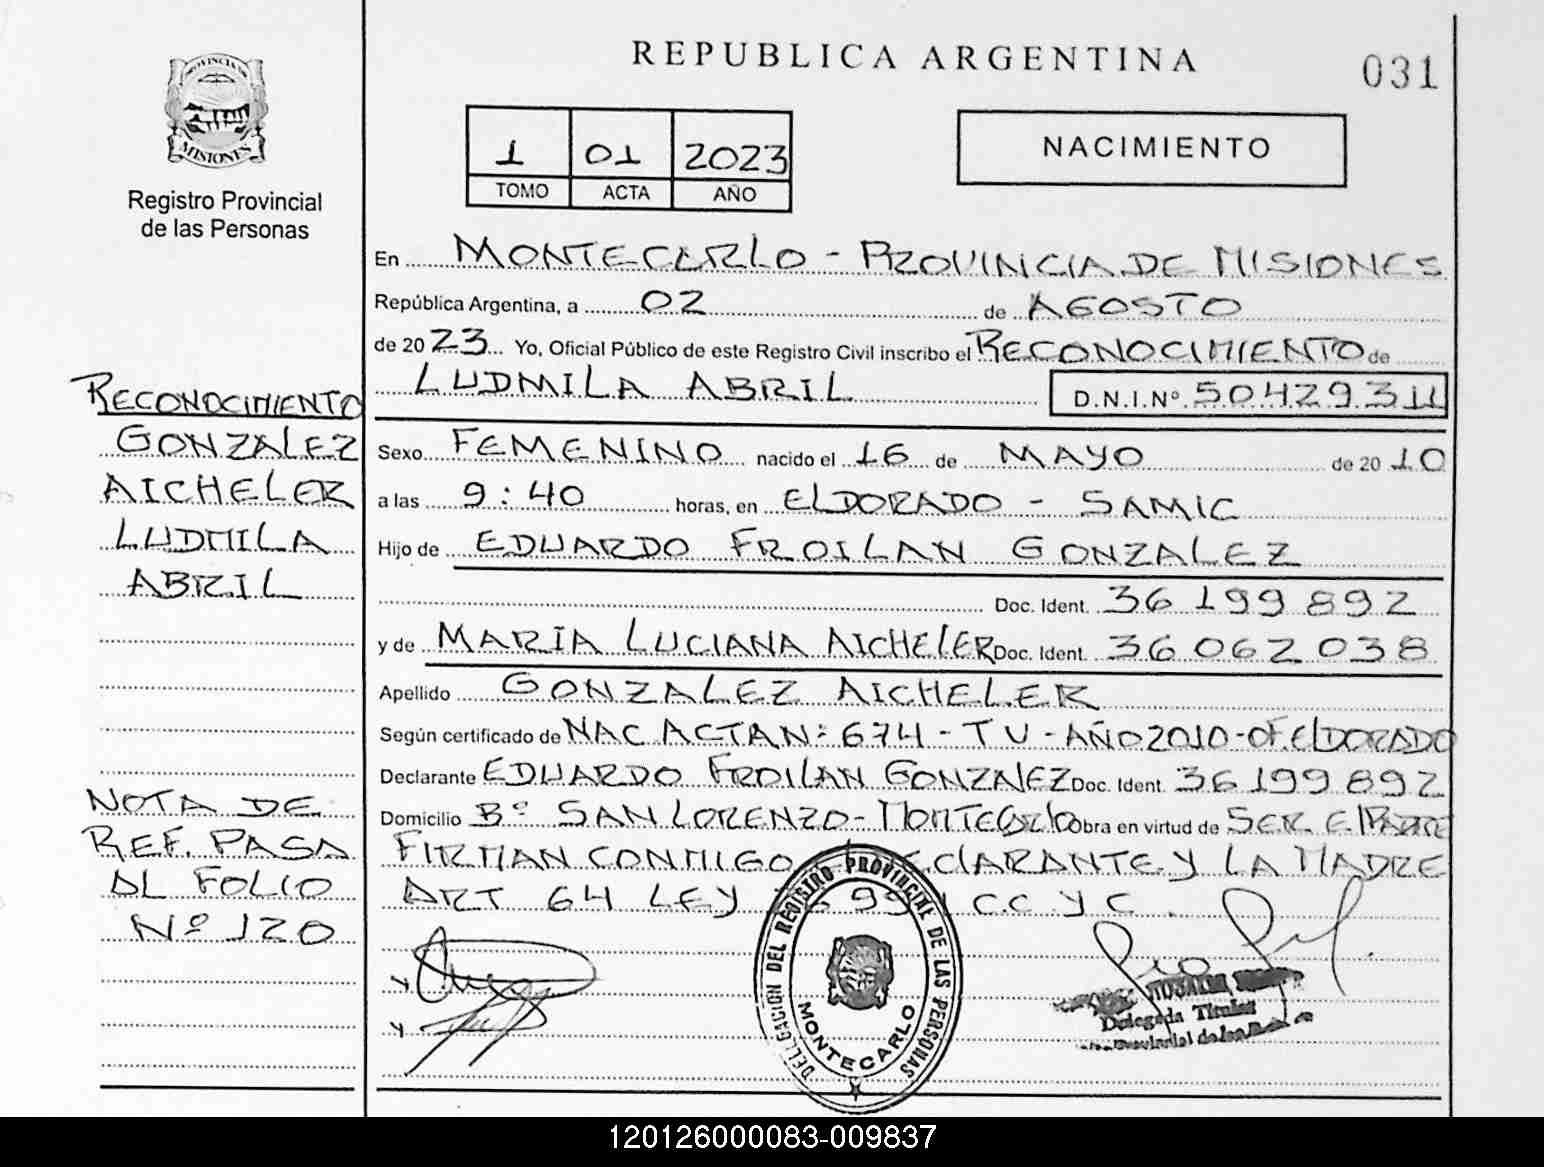 REPUBLICA ARGENTINA
031
PROVINCIA DE
MISIONES
Registro Provincial
de las Personas
1 01 2023
TOMO ACTA AÑO
NACIMIENTO
En MONTECARLO - PROVINCIA DE MISIONES
República Argentina, a 02 de AGOSTO
de 2023 Yo, Oficial Público de este Registro Civil inscribo el RECONOCIMIENTO de
LUDMILA ABRIL D.N.I.Nº 50429311
Sexo FEMENINO nacido el 16 de MAYO de 2010
a las 9:40 horas, en ELDORADO - SAMIC
Hijo de EDUARDO FROILAN GONZALEZ
Doc. Ident. 36 199 892
y de MARIA LUCIANA AICHELER Doc. Ident. 36 062 038
Apellido GONZALEZ AICHELER
Según certificado de NAC ACTA N: 674 - T V - AÑO 2010 - OF. ELDORADO
Declarante EDUARDO FROILAN GONZALEZ Doc. Ident. 36 199 892
Domicilio Bº SAN LORENZO - MONTECARLO Obra en virtud de SER EL PADRE
FIRMAN CONMIGO DECLARANTE Y LA MADRE
ART 64 LEY C.C Y C.
RECONOCIMIENTO
GONZALEZ
AICHELER
LUDMILA
ABRIL
NOTA DE
REF. PASA
AL FOLIO
Nº 120
DELEGACION DEL REGISTRO PROVINCIAL DE LAS PERSONAS
MONTECARLO
Delegada Titular
120126000083-009837